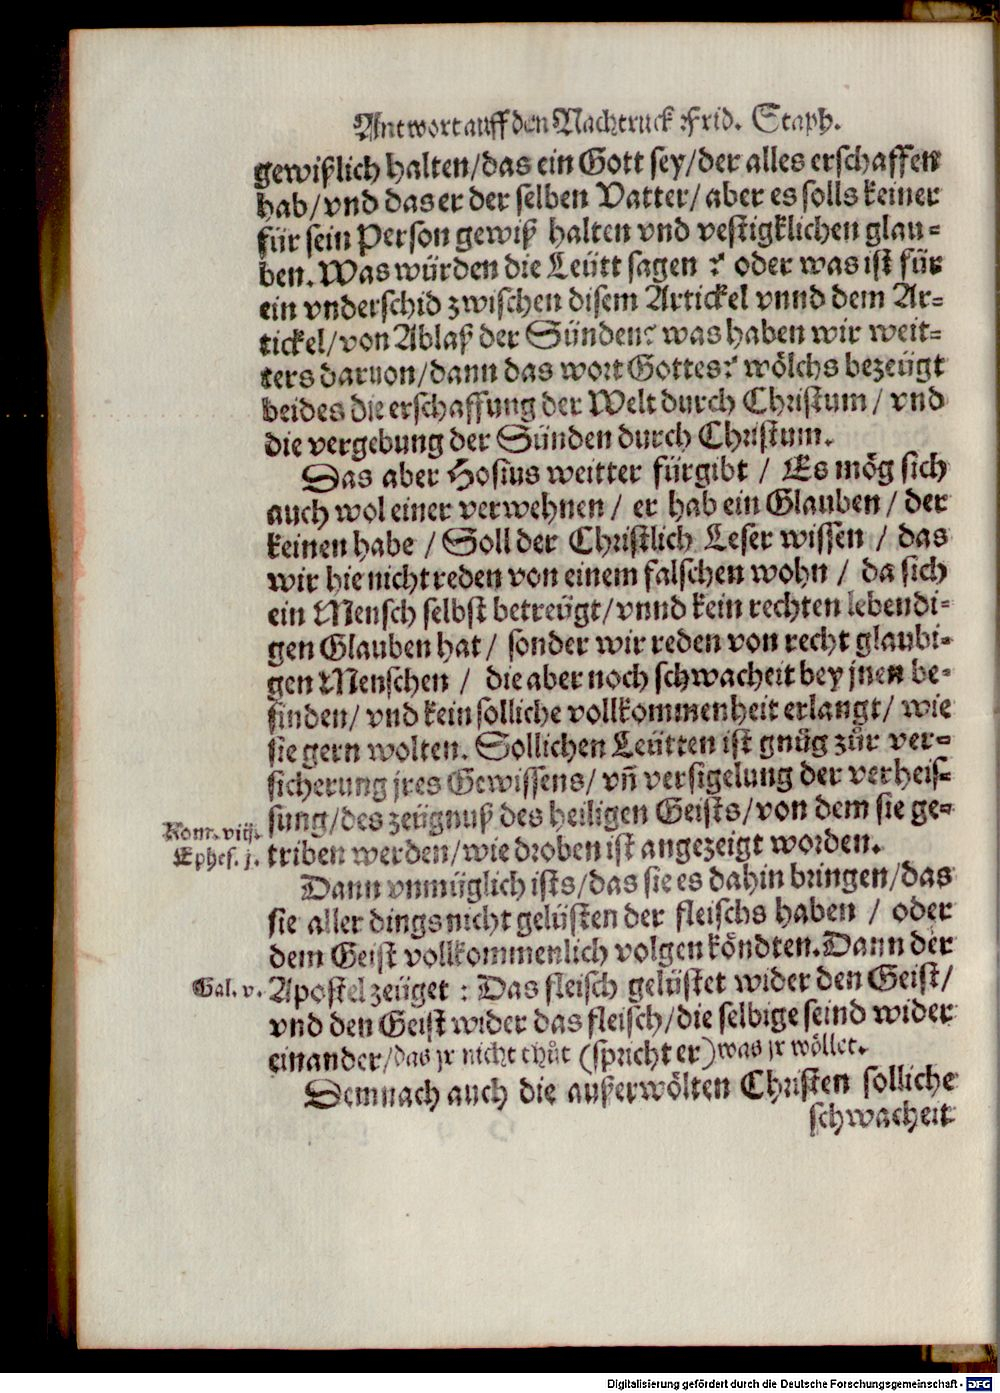 Antwort auff den Nachtruck Frid. Staph.
gewißlich halten/das ein Gott sey/der alles erschaffen
hab/vnd das er der selben Vatter/ aber es solls keiner
für sein Person gewiß halten vnd vestigklichen glau-
ben. Was würden die Leütt sagen ? oder was ist für
ein vnderschid zwischen disem Artickel vnnd dem Ar-
tickel/von Ablaß der Sünden? was haben wir weit-
ters daruon/dann das wort Gottes? wölchs bezeügt
beides die erschaffung der Welt durch Christum/ vnd
die vergebung der Sünden durch Christum.
Das aber Hosius weitter fürgibt / Es mög sich
auch wol einer verwehnen/ er hab ein Glauben/ der
keinen habe / Soll der Christlich Leser wissen / das
wir hie nicht reden von einem falschen wohn / da sich
ein Mensch selbst betreügt/vnnd kein rechten lebendi-
gen Glauben hat/ sonder wir reden von recht glaubi-
gen Menschen / die aber noch schwacheit bey jnen be-
finden/ vnd kein solliche vollkommenheit erlangt/ wie
sie gern wolten. Sollichen Leütten ist gnůg zůr ver-
sicherung jres Gewissens/ vñ versigelung der verheis-
sung/des zeügnuß des heiligen Geists/von dem sie ge-
Rom. viij.
Ephes. j.
triben werden/wie droben ist angezeigt worden.
Dann vnmüglich ists/das sie es dahin bringen/das
sie aller dings nicht gelüsten der fleischs haben / oder
dem Geist vollkommenlich volgen köndten. Dann der
Gal. v.
Apostel zeüget : Das fleisch gelüstet wider den Geist/
vnd den Geist wider das fleisch/die selbige seind wider
einander/das jr nicht thůt (spricht er) was jr wöllet.
Demnach auch die außerwölten Christen solliche
schwacheit
Digitalisierung gefördert durch die Deutsche Forschungsgemeinschaft - DFG